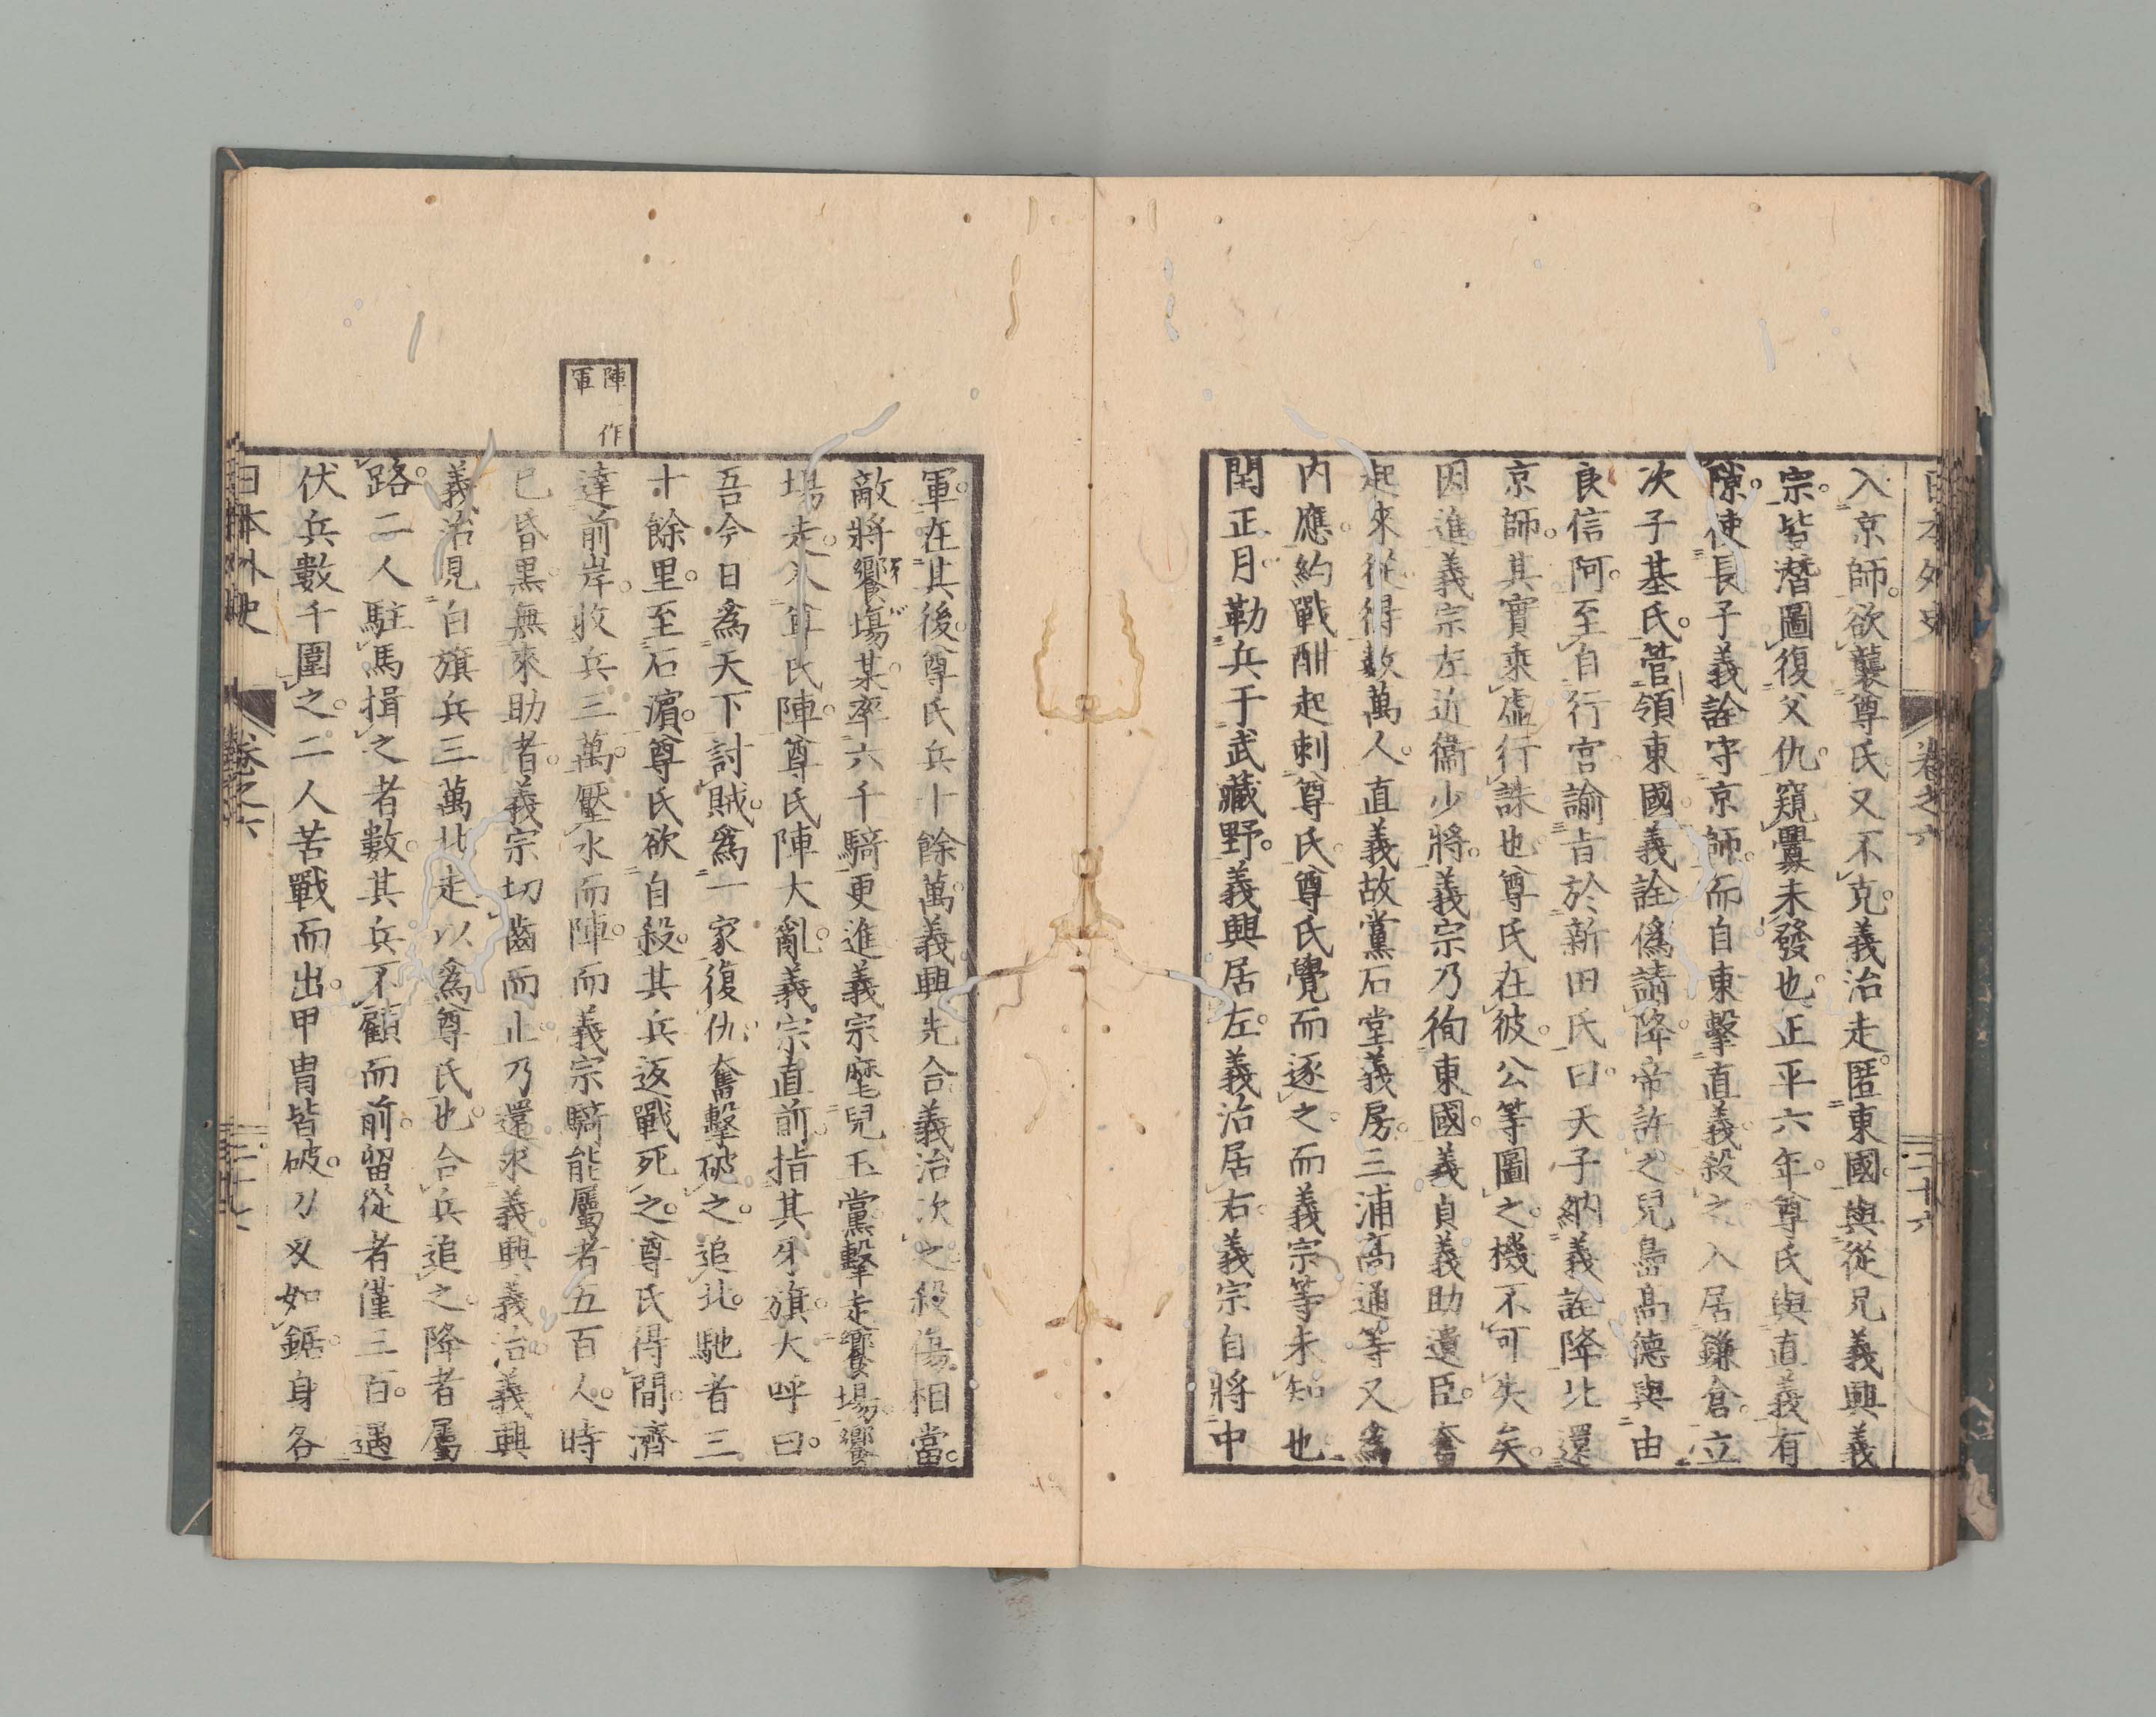 日本外史 卷之六 二十六
入京師。欲襲尊氏又不克。義治走匿東國。與從兄義興義
宗。皆潛圖復父仇。窺釁未發也。正平六年。尊氏與直義有
隙。使長子義詮守京師。而自東擊直義。殺之。入居鎌倉。立
次子基氏。管領東國。義詮僞請降。帝許之。兒島高德與由
良信阿。至自行宮。諭旨於新田氏曰。天子納義詮降。北還
京師。其實乘虛行誅也。尊氏在彼。公等圖之。機不可失矣。
因進義宗左近衞少將。義宗乃徇東國。義貞義助遺臣。奮
起來從。得數萬人。直義故黨石堂義房。三浦高通等又爲
内應。約戰酣起刺尊氏。尊氏覺而逐之。而義宗等未知也。
閏正月。勒兵于武藏野。義興居左。義治居右。義宗自將中
軍。在其後。尊氏兵十餘萬。義興先合。義治次之。殺傷相當。
敵將饗塲某。率六千騎更進。義宗麾兒玉黨擊走饗塲。饗
塲走。入尊氏陣。尊氏陣大亂。義宗直前。指其牙旗。大呼曰。
吾今日爲天下討賊。爲一家復仇。奮擊破之。追北。馳者三
十餘里。至石濵。尊氏欲自殺。其兵返戰死之。尊氏得間。濟
達前岸。收兵三萬。壓水而陣。而義宗騎能屬者五百人。時
已昏黒。無來助者。義宗切齒而止。乃還求義興義治。義興
義治見白旗兵三萬北走。以爲尊氏也。合兵追之。降者屬
路。二人駐馬揖之者數。其兵不顧而前。留從者僅三百。遇
伏兵數千圍之。二人苦戰而出。甲冑皆破。刀刃如鋸。身各
陣作
軍
日本外史 卷之六 二十七